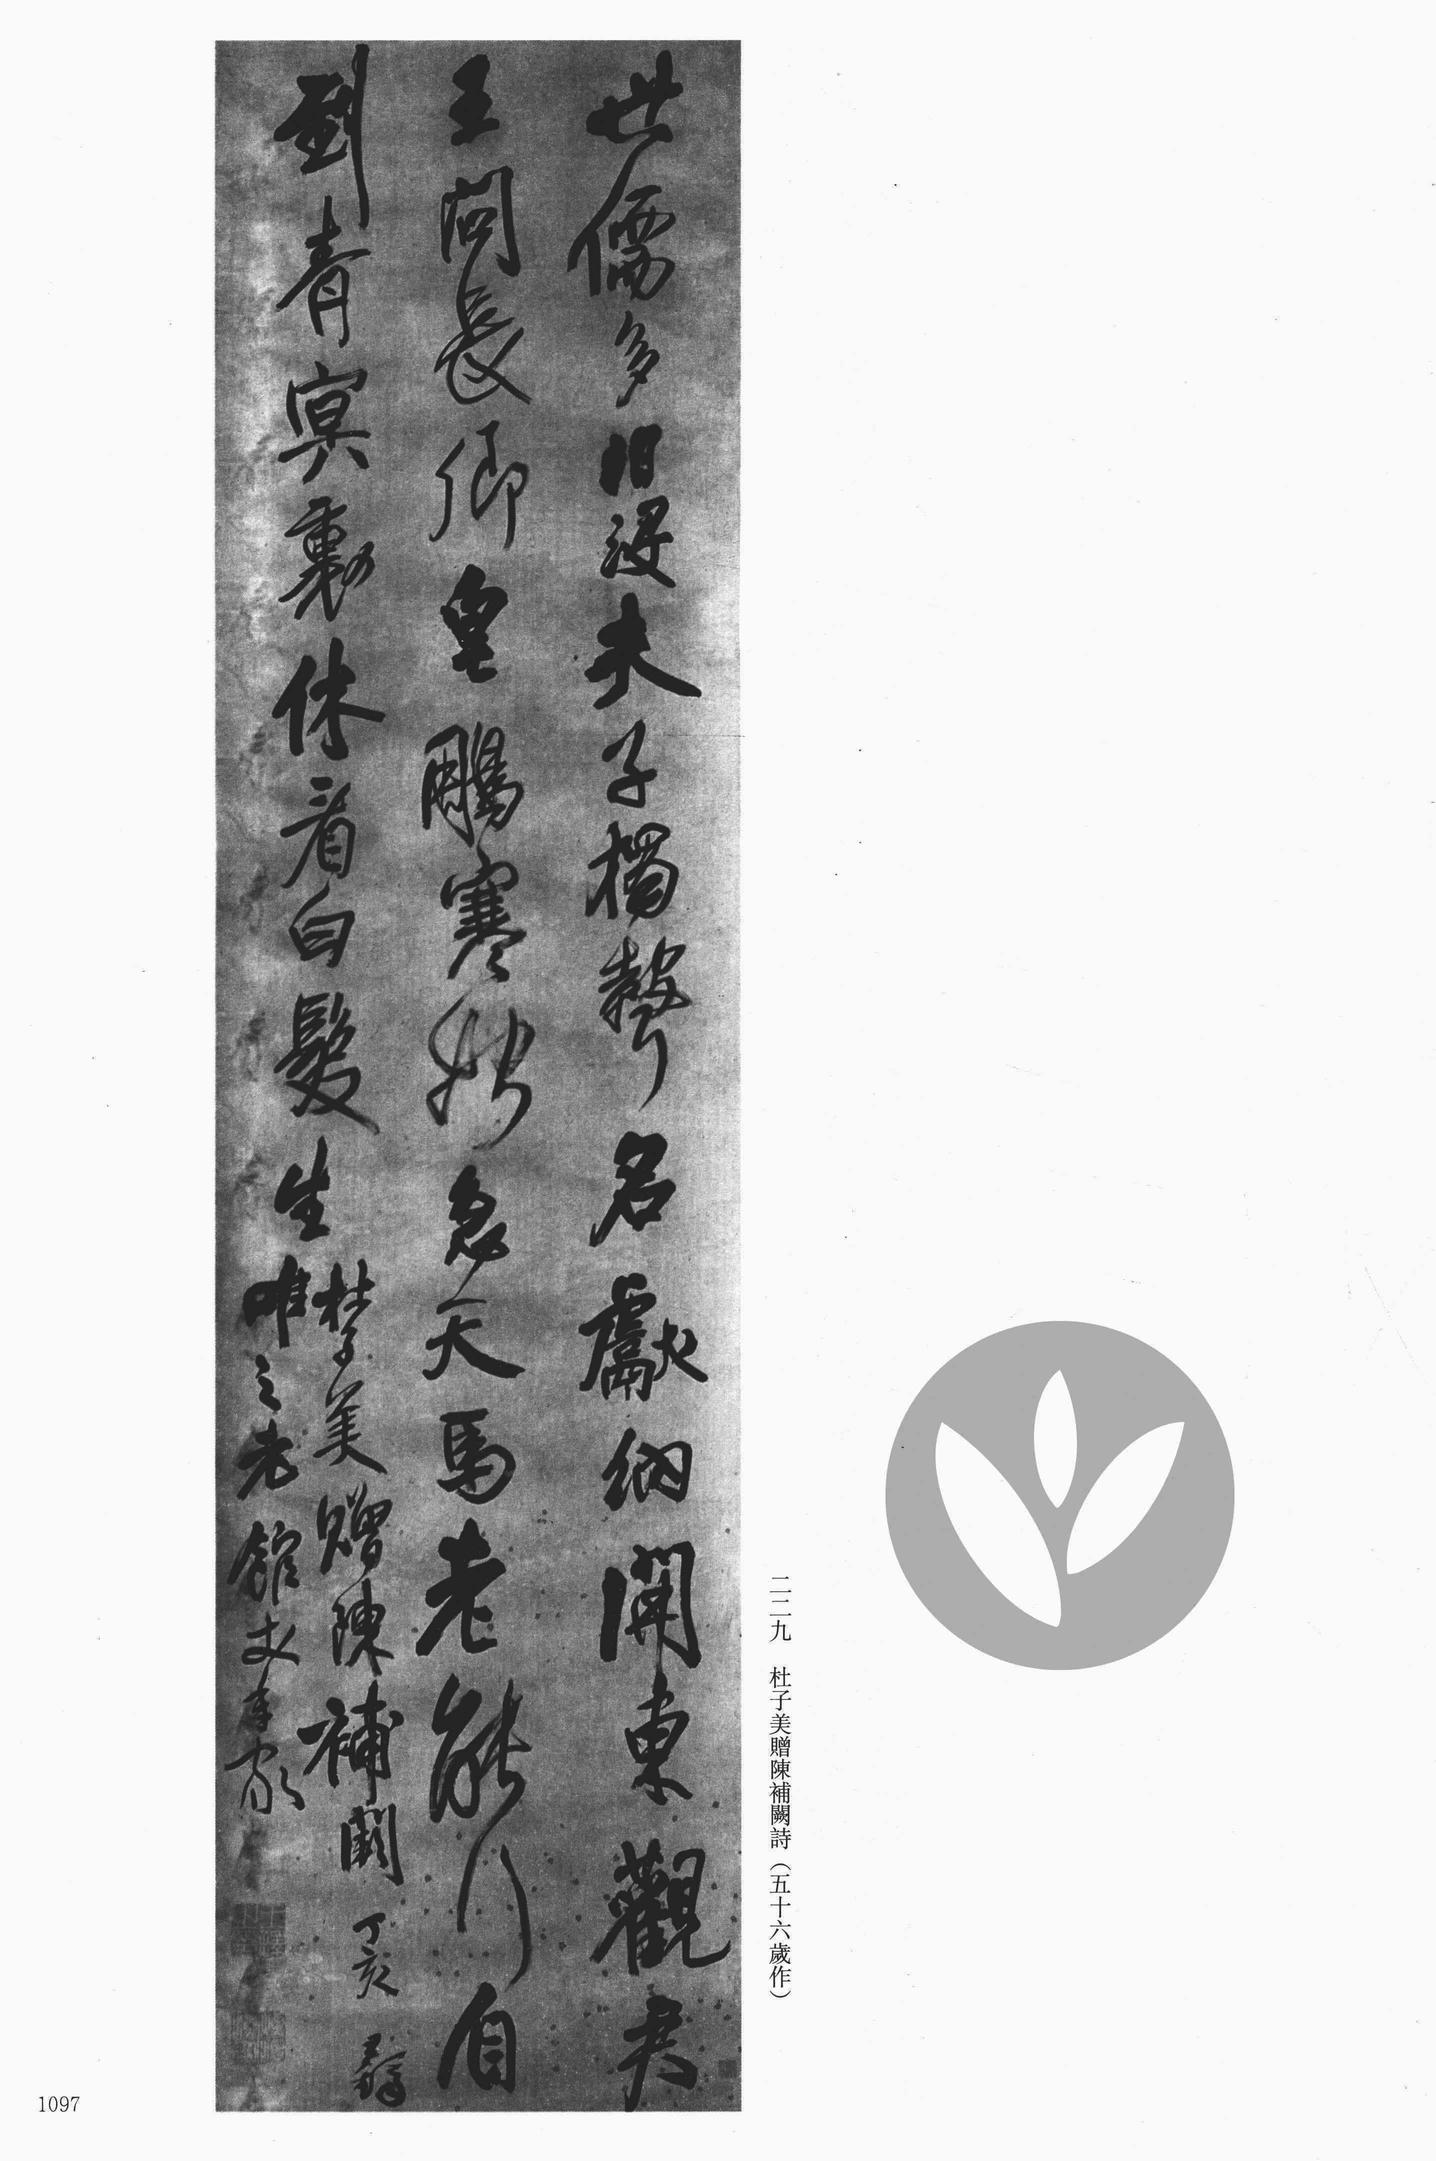 二二九 杜子美贈陳補闕詩（五十六歲作）
世儒多汩没夫子獨聲名獻納開東觀君
王問長卿皂鵰寒始急天馬老能行自
到青冥裏休看白髮生
杜子美贈陳補闕 丁亥 王鐸
唯之老館丈年家
1097